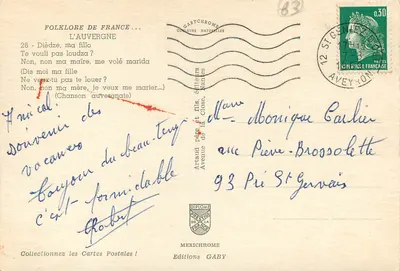 FOLKLORE DE FRANCE...
L'AUVERGNE
26 - Dièdze, ma fillo
Te vouli pas loudza ?
Non, non ma maïre, me volé marida
(Dis moi ma fille
Ne veux-tu pas te louer ?
Non, non ma mère, je veux me marier...)
(Chanson auvergnate)
Amical
souvenir des
vacances
Toujour du beau temp
c'est formidable
Robert
Collectionnez les Cartes Postales !
Artaud père et fils, éditeurs
MEXICHROME
Editions GABY
83
0,30
REPUBLIQUE FRANÇAISE
12 ST
AVEYRON
Mme Monique Carlier
rue Pierre-Brossolette
93 Pré St Gervais